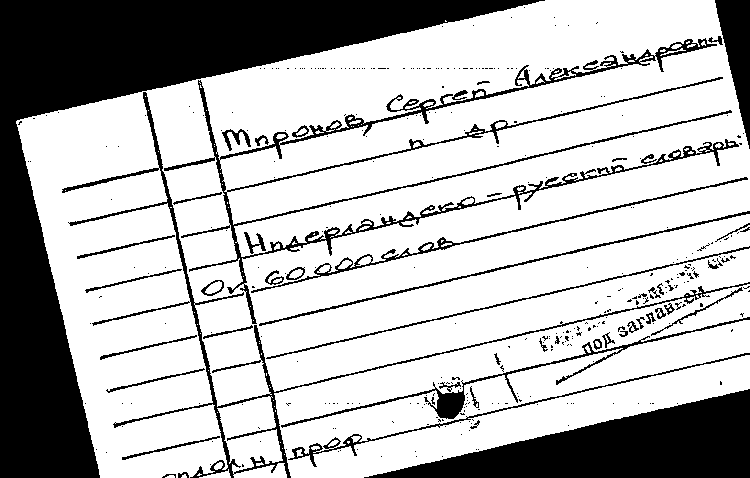 Миронов, Сергей Александрович
и др.
Нидерландско-русский словарь:
Ок. 60.000 слов
под заглавием
филол. н, проф.